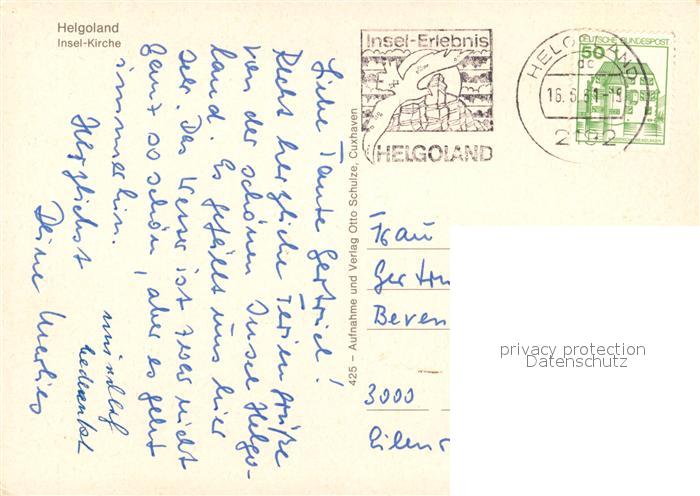 Helgoland
Insel-Kirche
Liebe Tante Gertrud!
Recht herzliche Feriengrüße
von der schönen Insel Helgo-
land. Es gefällt uns hier
sehr. Das Wetter ist zwar nicht
ganz so schön, aber es geht
immerhin.
Herzlichst
Deine Marlies
und
425 - Aufnahme und Verlag Otto Schulze, Cuxhaven
Insel-Erlebnis
HELGOLAND
HELGOLAND
2192
DEUTSCHE BUNDESPOST
50
Frau
Gertru
Beven
3000
privacy protection
Datenschutz